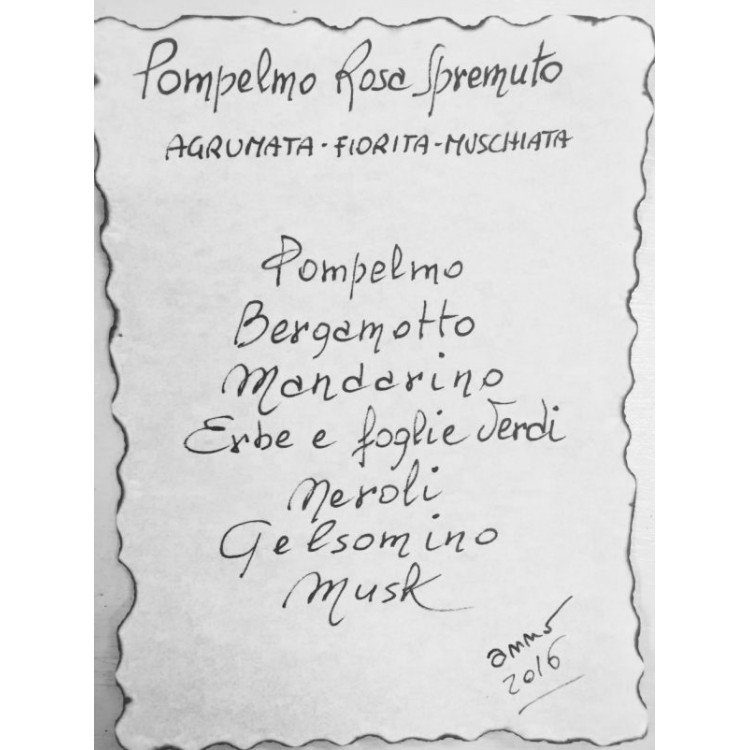 Pompelmo Rosa Spremuto
AGRUMATA - FIORITA - MUSCHIATA
Pompelmo
Bergamotto
Mandarino
Erbe e foglie Verdi
Neroli
Gelsomino
Musk
anno
2016